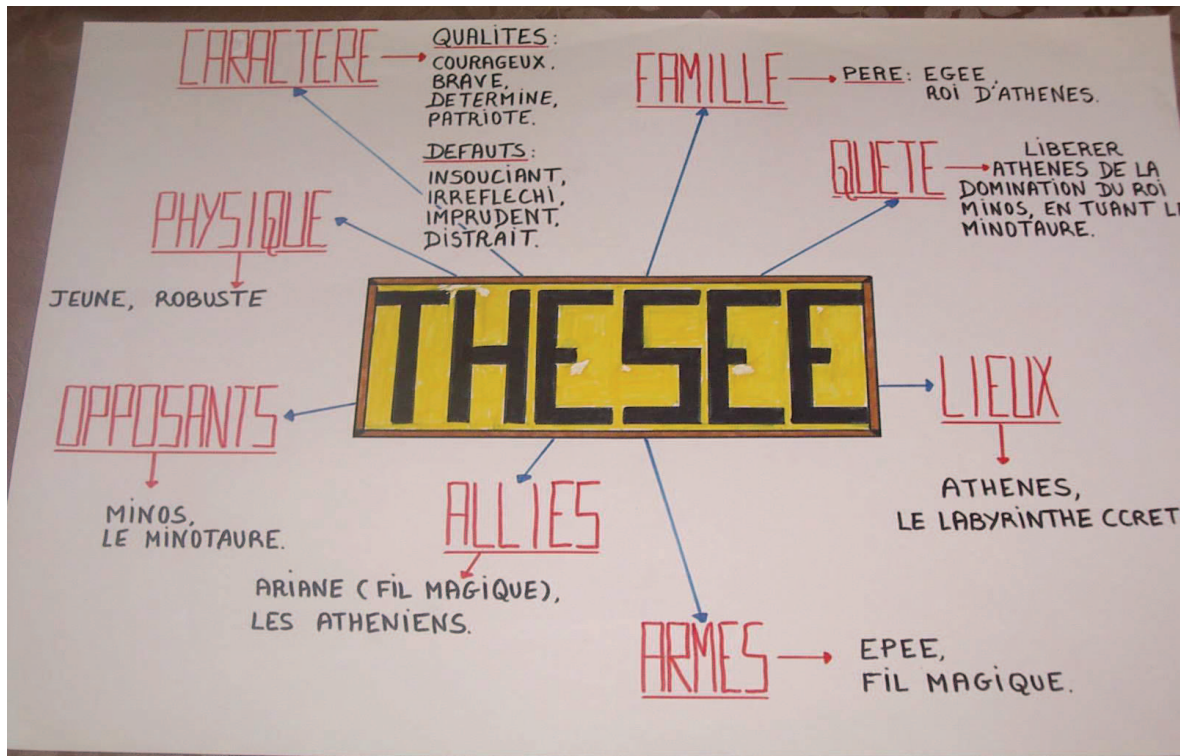 CARACTERE
QUALITES:
COURAGEUX,
BRAVE,
DETERMINE,
PATRIOTE.
DEFAUTS:
INSOUCIANT,
IRREFLECHI,
IMPRUDENT,
DISTRAIT.
FAMILLE
PERE: EGEE,
ROI D'ATHENES.
QUETE
LIBERER
ATHENES DE LA
DOMINATION DU ROI
MINOS, EN TUANT LE
MINOTAURE.
PHYSIQUE
JEUNE, ROBUSTE
THESEE
OPPOSANTS
MINOS,
LE MINOTAURE.
ALLIES
ARIANE (FIL MAGIQUE),
LES ATHENIENS.
LIEUX
ATHENES,
LE LABYRINTHE CCRET
ARMES
EPEE,
FIL MAGIQUE.